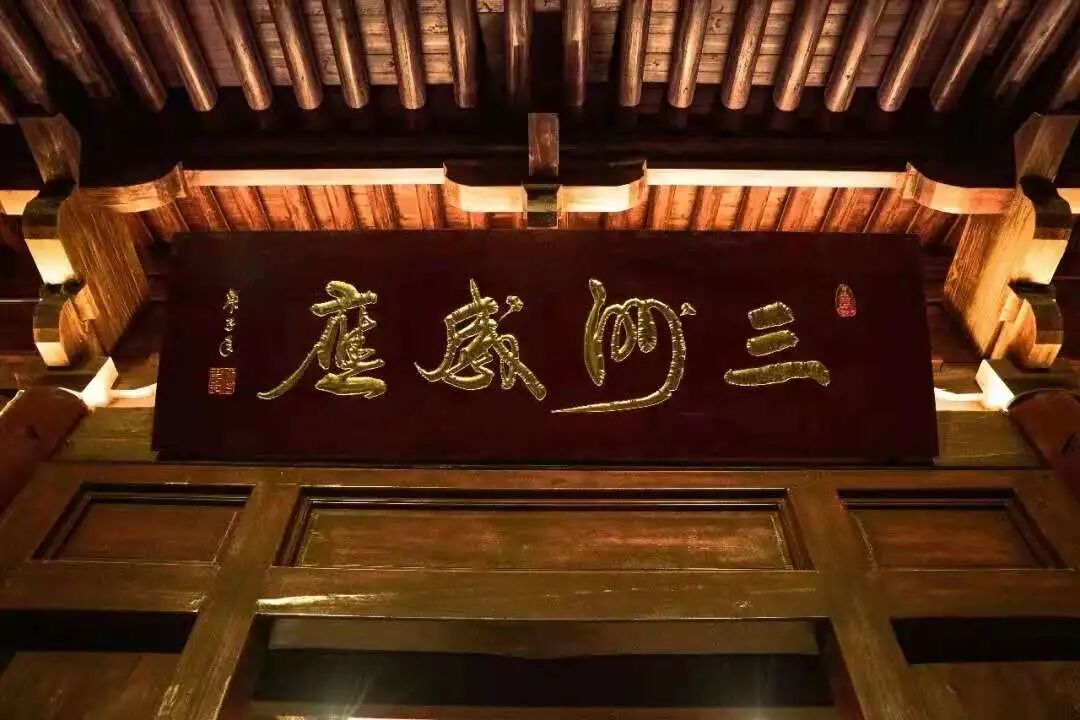 三洲感應